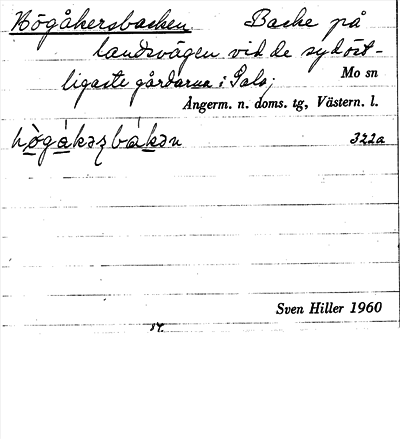 Högåkersbacken Backe på
landsvägen vid de sydöst-
ligaste gårdarna i Sals;
Mo sn
Ångerm. n. doms. tg, Västern. l.
hògákəʂbákən 322a
Sven Hiller 1960